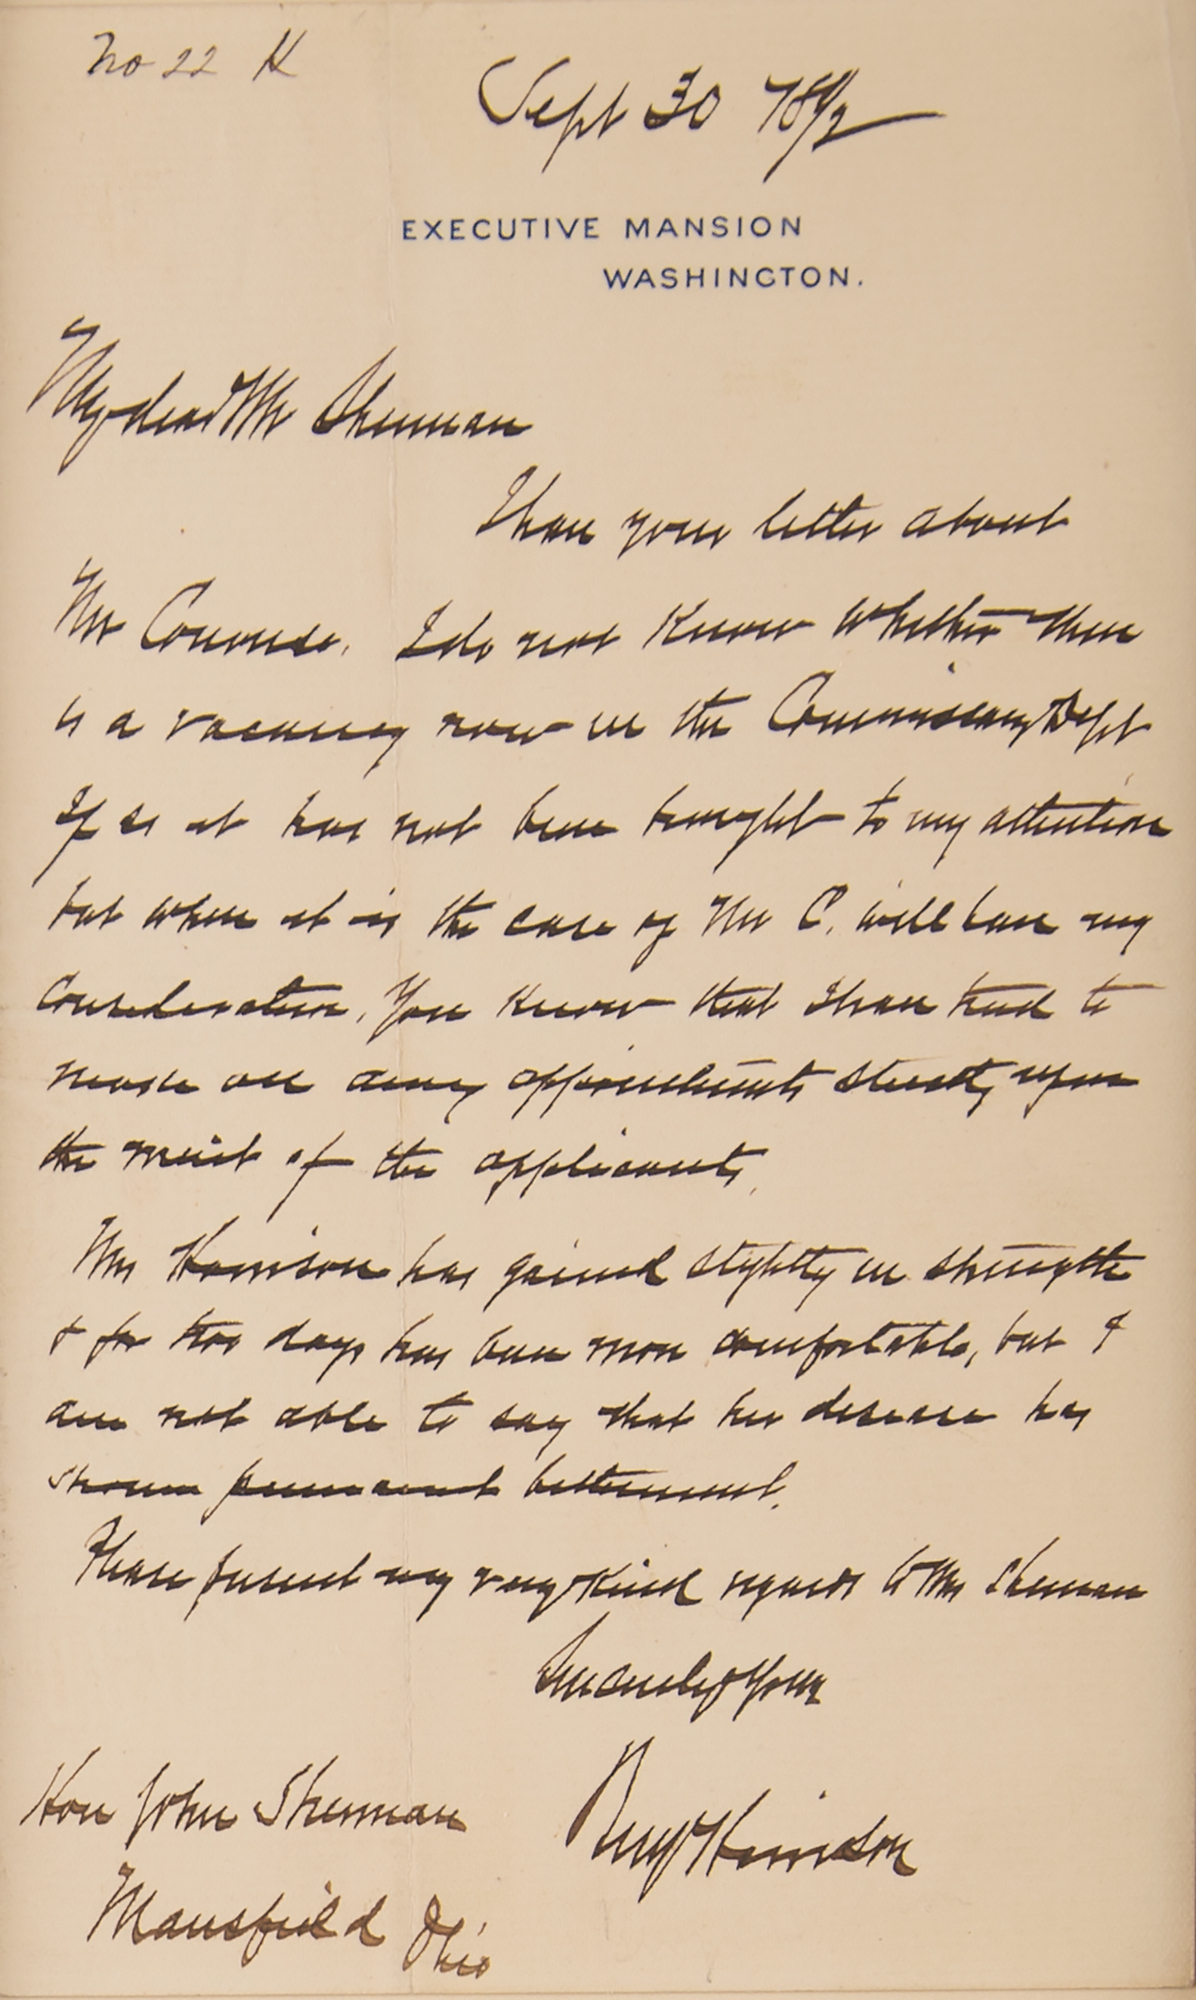 No 22 H
Sept 30 189/2
EXECUTIVE MANSION
WASHINGTON.
My dear Mr Sherman
I have your letter about
Mr Converse. I do not know whether there
is a vacancy now in the Commissary Dept
If so it has not been brought to my attention
but when it is the case of Mr C. will have my
consideration. You know that I have tried to
make all army appointments strictly upon
the merit of the applicants.
Mrs Harrison has gained slightly in strength
& for two days has been more comfortable, but I
am not able to say that her disease has
shown permanent betterment.
Please present my very kind regards to Mrs Sherman
Sincerely Yours
Benj Harrison
Hon John Sherman
Mansfield Ohio